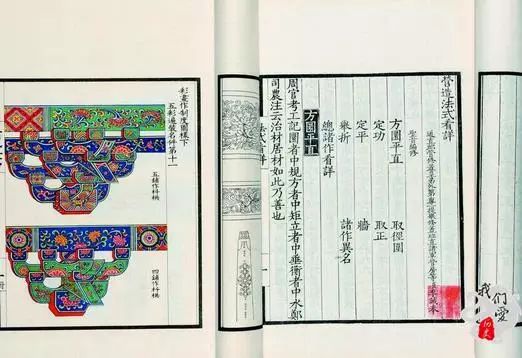 營造法式看詳
通直郎管修蓋皇弟外第專一提舉修蓋班直諸軍營房等臣李誡奉
聖旨編修
方圜平直 取徑圍
定功 取正
定平 牆
舉折 諸作異名
總諸作看詳
方圜平直
周官考工記圜者中規方者中矩立者中垂衡者中水鄭
司農注云治材居材如此乃善也
彩畫作制度圖樣下
五彩遍裝名件第十一
五鋪作枓栱
四鋪作枓栱
我们爱
历史